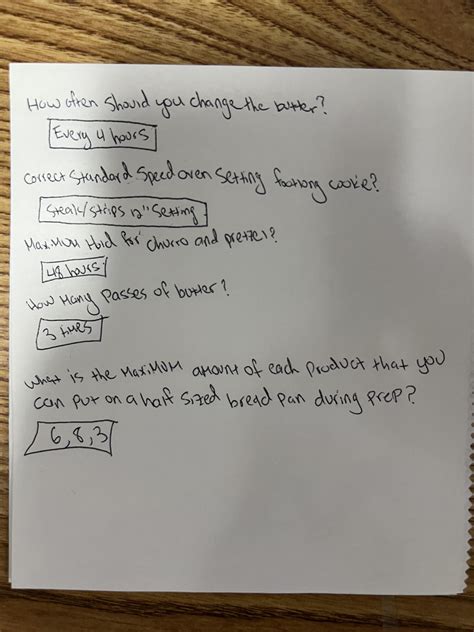 How often should you change the butter?
Every 4 hours
Correct Standard Speed oven Setting footlong cookie?
Steak/strips 12" Setting
Maximum Hold for churro and pretzel?
48 hours
How Many Passes of butter?
3 times
What is the Maximum amount of each Product that you
can put on a half sized bread pan during prep?
6,8,3